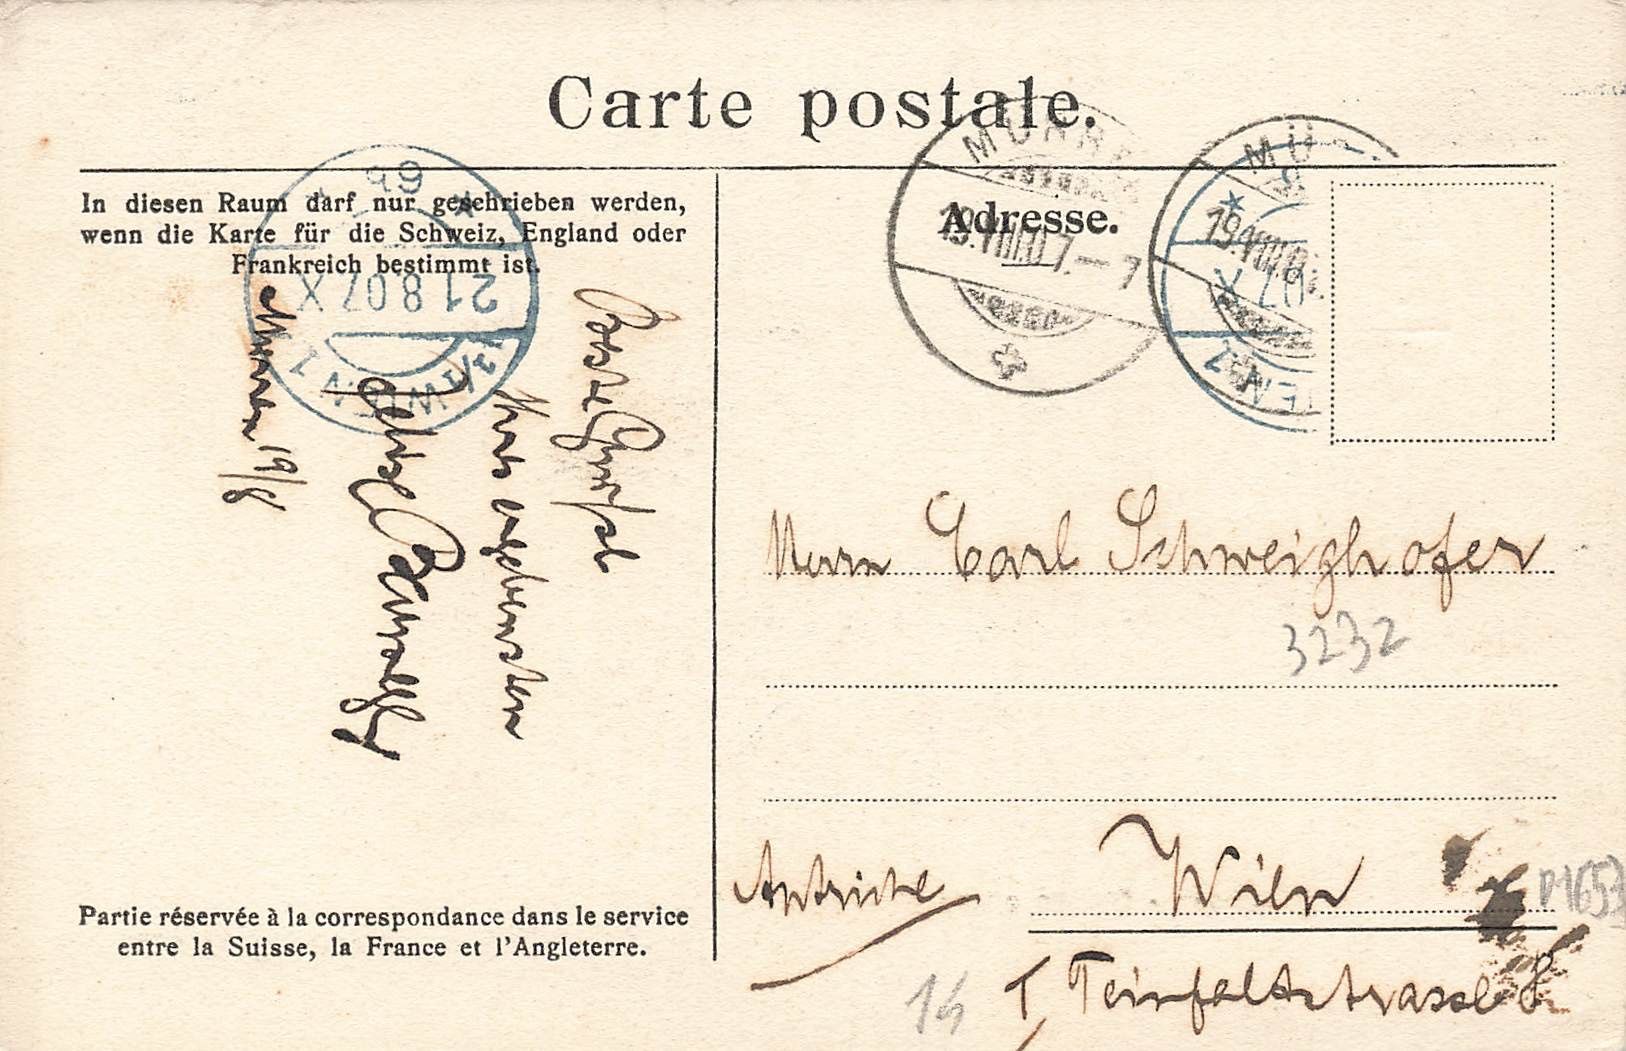 Carte postale.
In diesen Raum darf nur geschrieben werden,
wenn die Karte für die Schweiz, England oder
Frankreich bestimmt ist.
Adresse.
MÜRR
19.VIII.07.–7
MÜ
19.VIII.07
21.8.07.X
WIEN 1
Beste Grüsse
Ihres ergebensten
Mürren 19/8
Herrn Carl Schweighofer
3232
Autriche
Wien
I, Teinfaltstrasse
14
Partie réservée à la correspondance dans le service
entre la Suisse, la France et l'Angleterre.